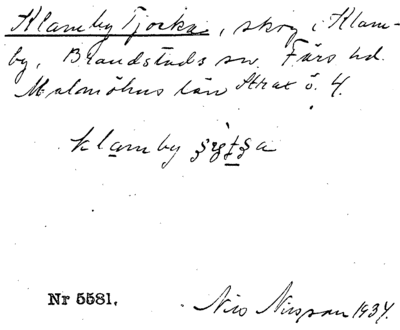 Klamby Tjocka, skog i Klam-
by, Brandstads sn. Färs hd.
Malmöhus län Strax ö. 4.
klamby
Nr 5581.
Nils Nilsson 1934.